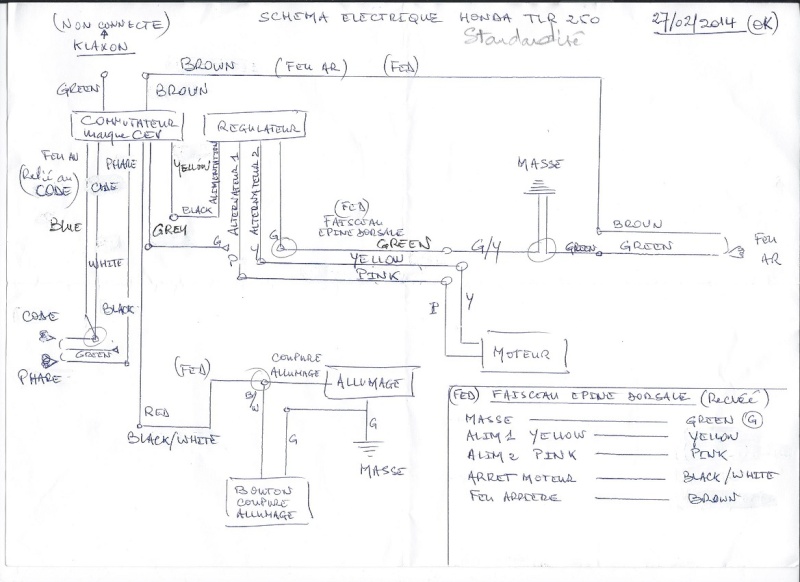 (NON CONNECTE)
KLAXON
SCHEMA ELECTRIQUE HONDA TLR 250
Standardisé
27/02/2014 (OK)
BROWN (FEU AR) (FED)
GREEN
BROWN
COMMUTATEUR
marque CEV
REGULATEUR
FEU AV
(Relié au
CODE)
CODE
PHARE
YELLOW
ALIMENTATION
ALTERNATEUR 1
ALTERNATEUR 2
BLACK
BLUE
GREY
G
P
Y
G
(FED)
FAISCEAU
EPINE DORSALE
GREEN
YELLOW
PINK
G/Y
MASSE
BROWN
GREEN
GREEN
FEU
AR
WHITE
BLACK
CODE
GREEN
PHARE
P
Y
MOTEUR
(FED)
COUPURE
ALLUMAGE
ALLUMAGE
B/W
RED
BLACK/WHITE
G
G
MASSE
BOUTON
COUPURE
ALLUMAGE
(FED) FAISCEAU EPINE DORSALE (Recréé)
MASSE GREEN (G)
ALIM 1 YELLOW YELLOW
ALIM 2 PINK PINK
ARRET MOTEUR BLACK/WHITE
FEU ARRIERE BROWN